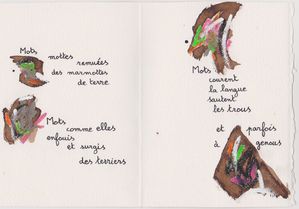 Mots
mottes
remuées
des marmottes
de terre
Mots
comme elles
enfouis
et surgis
des terriers
Mots
courent
la langue
sautent
les trous
et parfois
à genoux